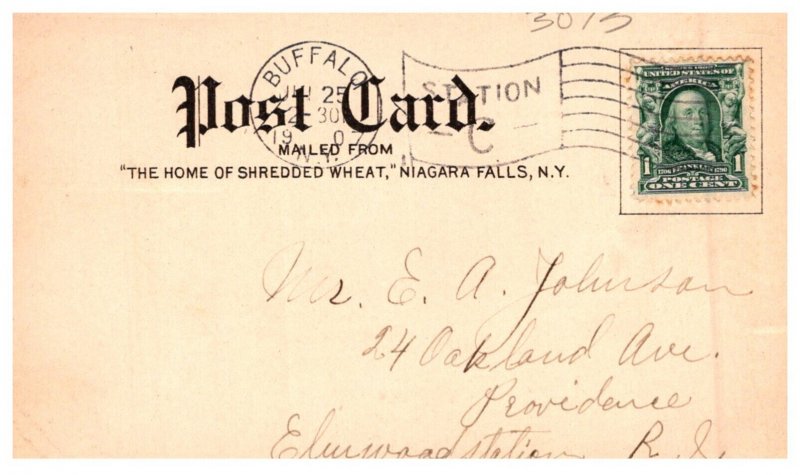 3013
BUFFALO
25
30
19 07
N.Y.
STATION
C
Post Card.
MAILED FROM
"THE HOME OF SHREDDED WHEAT," NIAGARA FALLS, N.Y.
UNITED STATES OF
AMERICA
1 1706 FRANKLIN 1790 1
POSTAGE
ONE CENT
Mr. E. A. Johnson
24 Oakland Ave.
Providence
Elmwood station R. I.